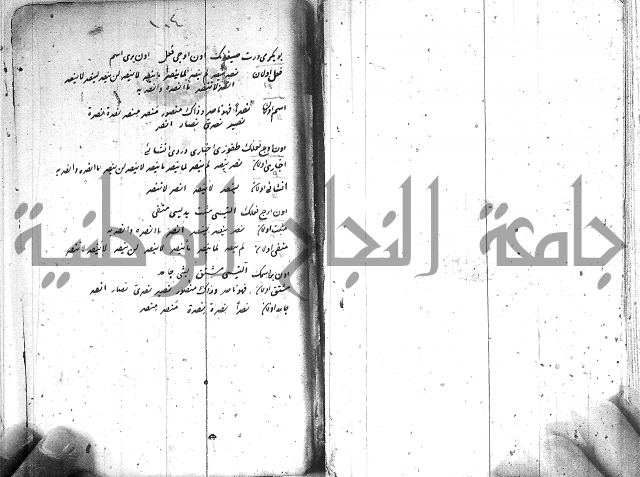 ١٠٤
بو یكرمی درت صیغه‌نك اون اوچی فعل اون بری اسم
فعل اولان نصر ینصر لم ینصر لما ینصر ما ینصر لا ینصر لن ینصر لینصر لا ینصر
انصر لا تنصر ما انصره وانصر به
اسم اولان نصرا فهو ناصر وذاك منصور منصر منصر نصرة نصرة
نصیر نصری نصار انصر
اون اوچ فعلك طقوزی اخباری دردی انشائی
اخباری اولان نصر ینصر لم ینصر لما ینصر ما ینصر لا ینصر لن ینصر ما انصره وانصر به
انشائی اولان لینصر لا ینصر انصر لا تنصر
اون اوچ فعلك التیسی مثبت یدیسی منفی
مثبت اولان نصر ینصر لینصر انصر ما انصره وانصر به
منفی اولان لم ینصر لما ینصر ما ینصر لا ینصر لن ینصر لا ینصر لا تنصر
اون بر اسمك التیسی مشتق بشی جامد
مشتق اولان فهو ناصر وذاك منصور نصیر نصری نصار انصر
جامد اولان نصرا نصرة نصرة منصر منصر
جامعة النجاح الوطنية